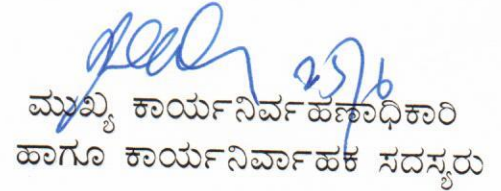 25/6
ಮುಖ್ಯ ಕಾರ್ಯನಿರ್ವಹಣಾಧಿಕಾರಿ
ಹಾಗೂ ಕಾರ್ಯನಿರ್ವಾಹಕ ಸದಸ್ಯರು